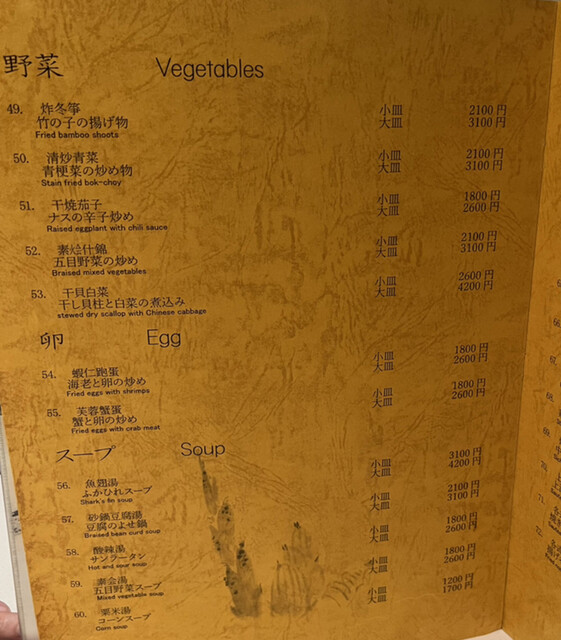 野菜 Vegetables
49. 炸冬筝 小皿 2100円
竹の子の揚げ物 大皿 3100円
Fried bamboo shoots
50. 清炒青菜 小皿 2100円
青梗菜の炒め物 大皿 3100円
Stain fried bok-choy
51. 干焼茄子 小皿 1800円
ナスの辛子炒め 大皿 2600円
Raised eggplant with chili sauce
52. 素烩什錦 小皿 2100円
五目野菜の炒め 大皿 3100円
Braised mixed vegetables
53. 干貝白菜 小皿 2600円
干し貝柱と白菜の煮込み 大皿 4200円
stewed dry scallop with Chinese cabbage
卵 Egg
54. 蝦仁跑蛋 小皿 1800円
海老と卵の炒め 大皿 2600円
Fried eggs with shrimps
55. 芙蓉蟹蛋 小皿 1800円
蟹と卵の炒め 大皿 2600円
Fried eggs with crab meat
スープ Soup
56. 魚翅湯 小皿 3100円
ふかひれスープ 大皿 4200円
Shark's fin soup
57. 砂鍋豆腐湯 小皿 2100円
豆腐のよせ鍋 大皿 3100円
Braised bean curd soup
58. 酸辣湯 小皿 1800円
サンラータン 大皿 2600円
Hot and sour soup
59. 素会湯 小皿 1800円
五目野菜スープ 大皿 2600円
Mixed vegetable soup
60. 粟米湯 小皿 1200円
コーンスープ 大皿 1700円
Corn soup